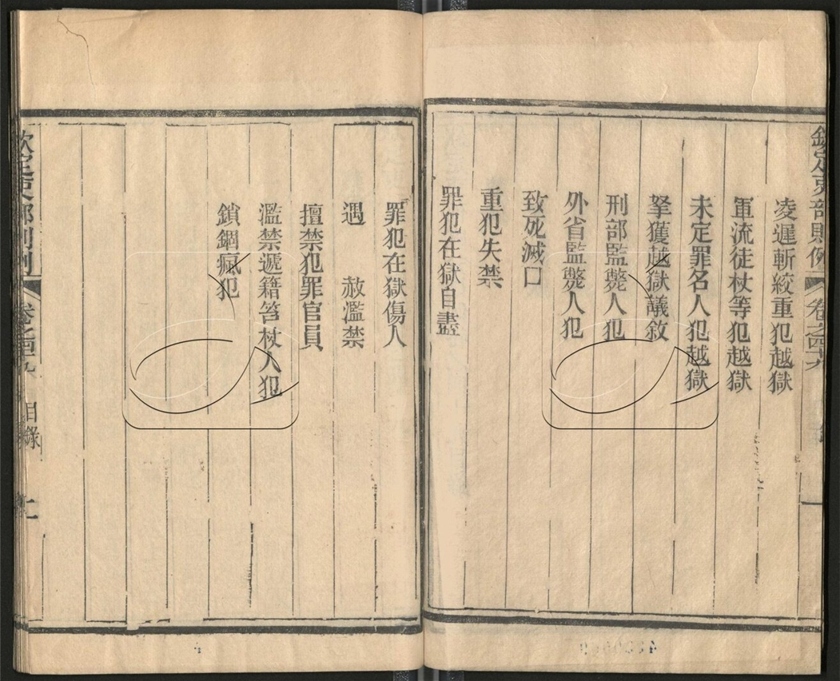 欽定吏部則例 卷之四十九
凌遲斬絞重犯越獄
軍流徒杖等犯越獄
未定罪名人犯越獄
拏獲越獄議敘
刑部監斃人犯
外省監斃人犯
致死滅口
重犯失禁
罪犯在獄自盡
罪犯在獄傷人
遇 赦濫禁
擅禁犯罪官員
濫禁遞籍笞杖人犯
鎖錮瘋犯
欽定吏部則例 卷之四十九 目錄